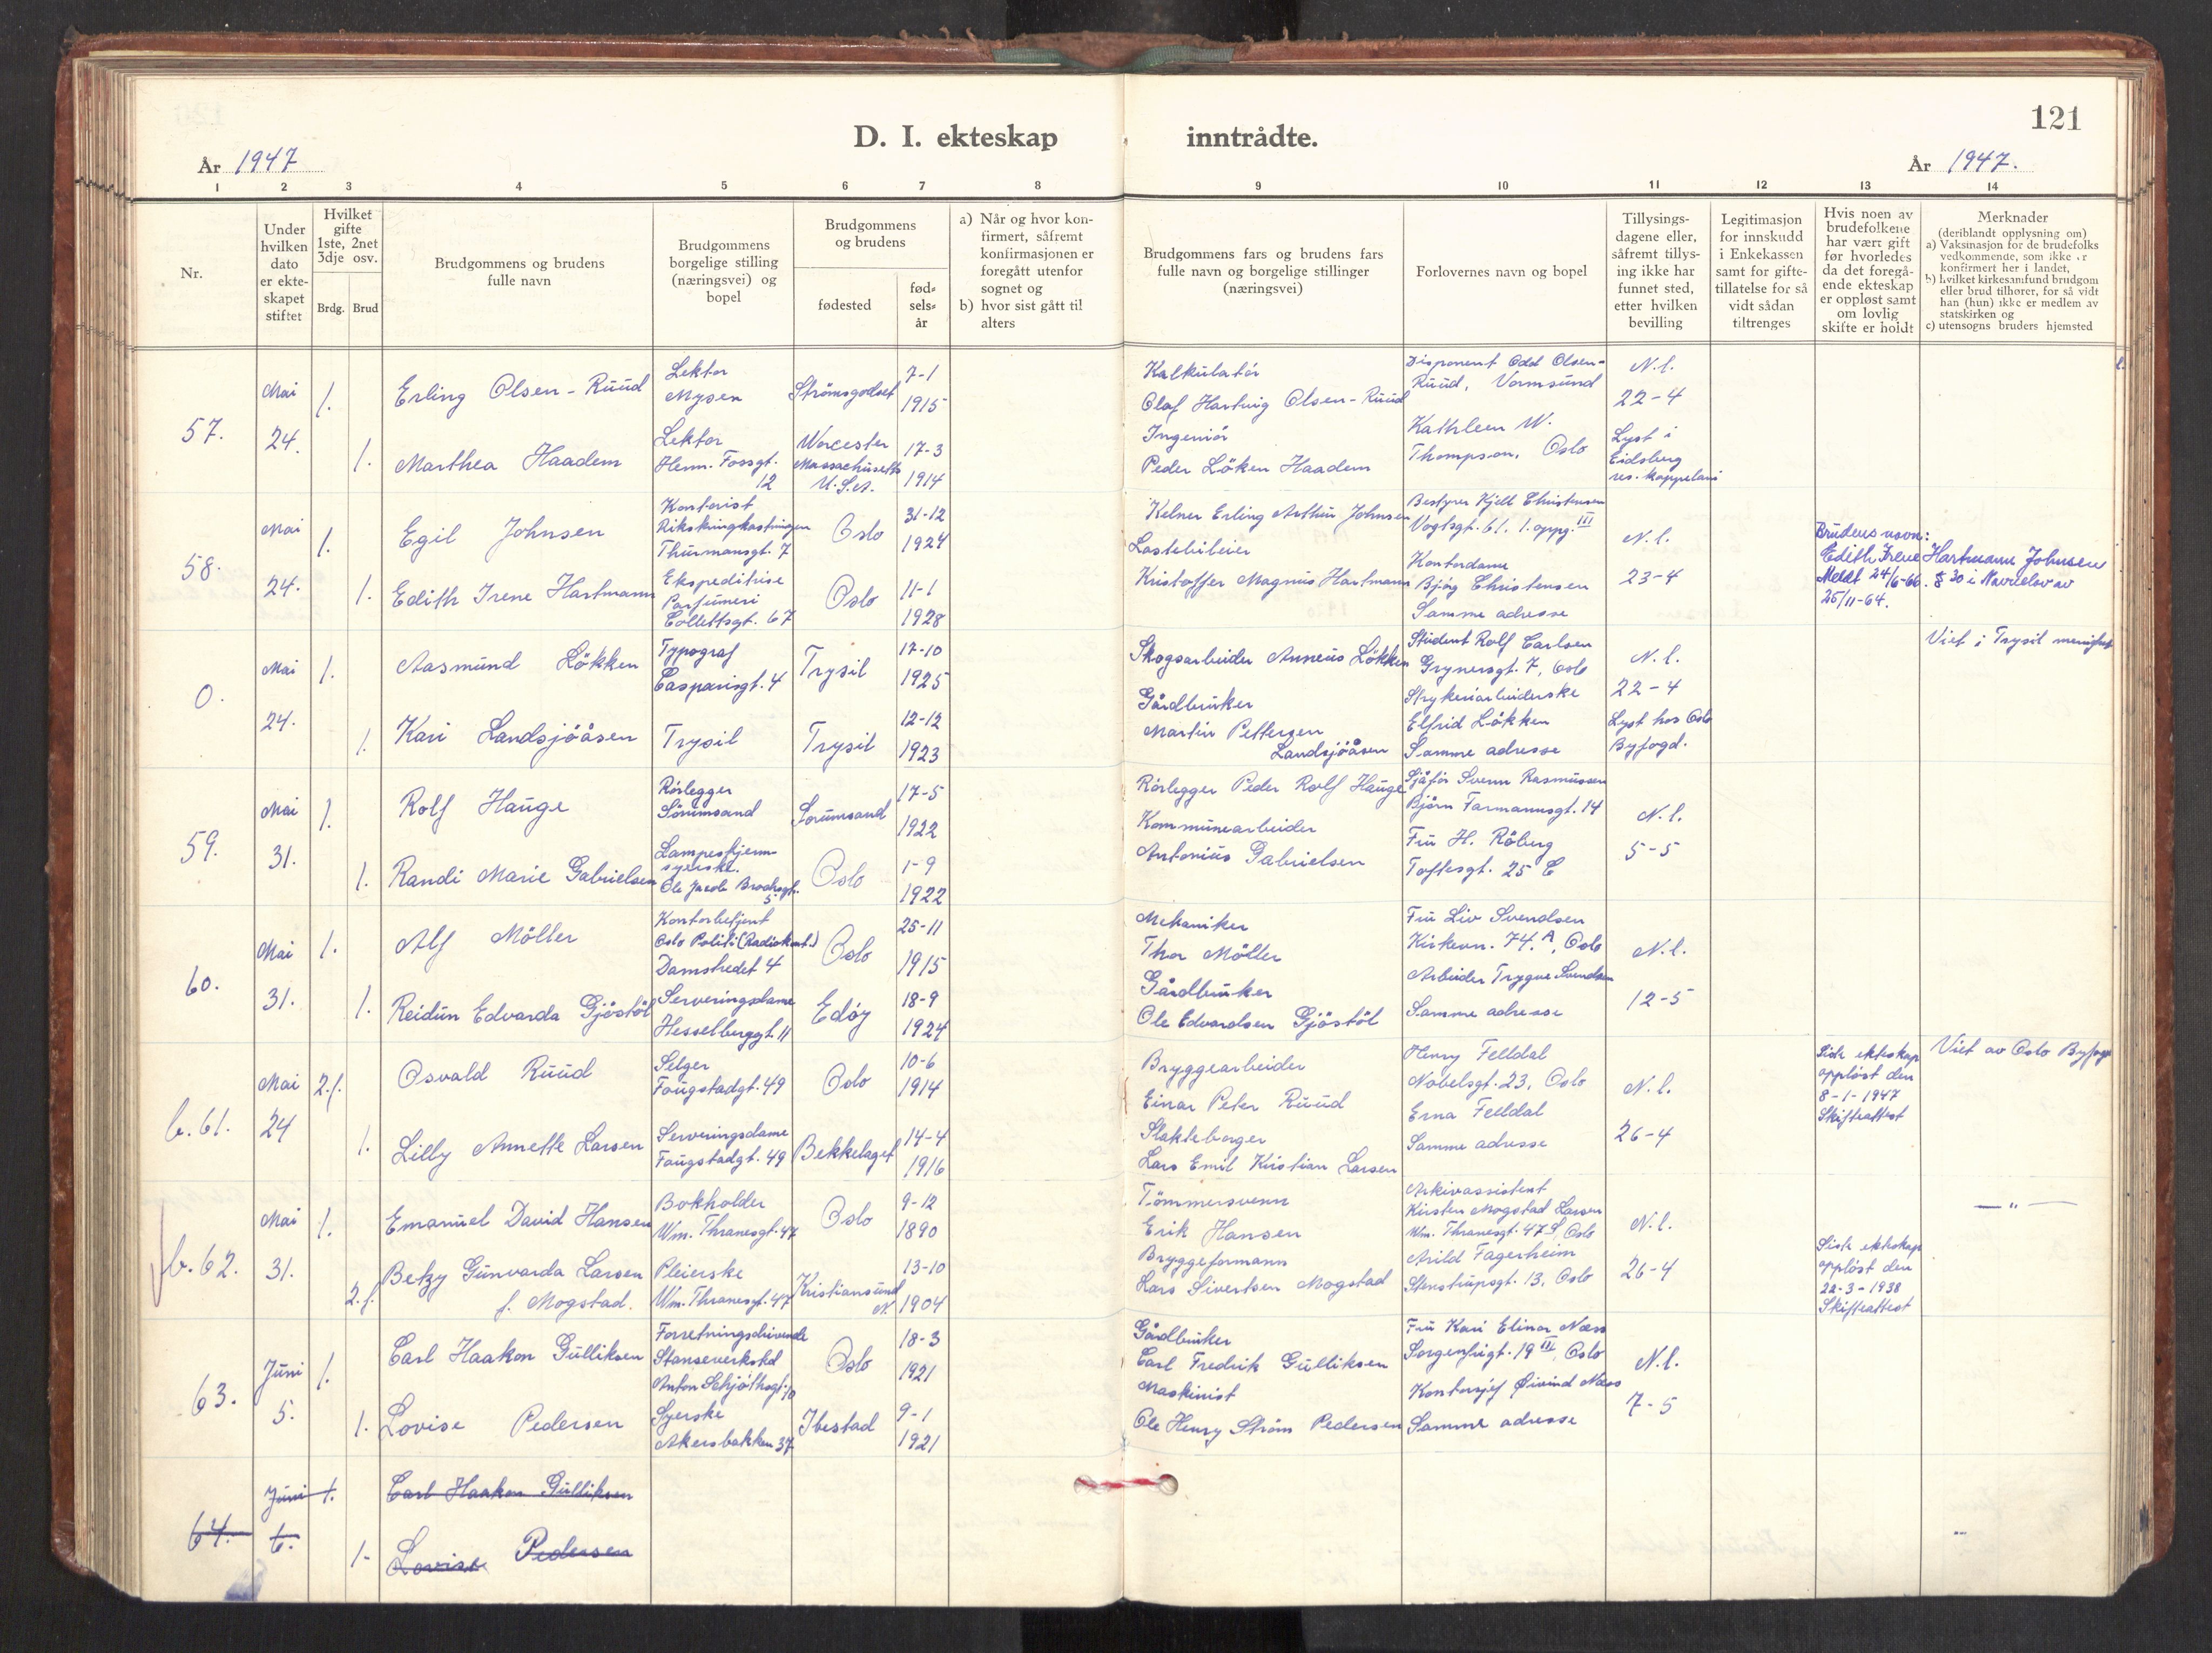 121
D. I. ekteskap inntrådte.
År 1947
År 1947.
1 2 3 4 5 6 7 8 9 10 11 12 13 14
Nr.
Under hvilken dato er ekteskapet stiftet
Hvilket gifte 1ste, 2net 3dje osv.
Brdg. Brud
Brudgommens og brudens fulle navn
Brudgommens borgelige stilling (næringsvei) og bopel
Brudgommens og brudens
fødested
fødselsår
a) Når og hvor konfirmert, såfremt konfirmasjonen er foregått utenfor sognet og
b) hvor sist gått til alters
Brudgommens fars og brudens fars fulle navn og borgelige stillinger (næringsvei)
Forlovernes navn og bopel
Tillysingsdagene eller, såfremt tillysing ikke har funnet sted, etter hvilken bevilling
Legitimasjon for innskudd i Enkekassen samt for giftetillatelse for så vidt sådan tiltrenges
Hvis noen av brudefolkene har vært gift før hvorledes da det foregående ekteskap er oppløst samt om lovlig skifte er holdt
Merknader
(deriblandt opplysning om)
a) Vaksinasjon for de brudefolks vedkommende, som ikke er konfirmert her i landet,
b) hvilket kirkesamfund brudgom eller brud tilhører, for så vidt han (hun) ikke er medlem av statskirken og
c) utensogns bruders hjemsted
57.
Mai
24.
1.
Erling Olsen-Ruud
Lektor
Mysen
Strømsgodset
7-1
1915
Kalkulatör
Olaf Hartvig Olsen-Ruud
Disponent Odd Olsen-
Ruud, Vormsund
N.l.
22-4
1.
Marthea Haadem
Lektor
Herm. Fossgt.
12
Worcester
Massachusetts
U.S.A.
17-3
1914
Ingeniör
Peder Löken Haadem
Kathleen W.
Thompson, Oslo
Lyst i
Eidsberg
res. kappelani
58.
Mai
24.
1.
Egil Johnsen
Kontorist
Rikskringkastningen
Thurmansgt. 7
Oslo
31-12
1924
Kelner Erling Arthur Johnsen
Bestyrer Kjell Christensen
Vogtsgt. 61. 1. oppg. III
N.l.
23-4
1.
Edith Irene Hartmann
Ekspeditrise
Parfumeri
Collettsgt. 67
Oslo
11-1
1928
Lastebileier
Kristoffer Magnus Hartmann
Kontordame
Bjög Christensen
Samme adresse
Brudens navn:
Edith Irene Hartmann Johnsen
Meldt 24/6-66. § 30 i Navnelov av
25/11-64.
0.
Mai
24.
1.
Aasmund Lökken
Typograf
Casparisgt. 4
Trysil
17-10
1925
Skogsarbeider Anneus Lökken
Student Rolf Carlsen
Grynersgt. 7, Oslo
N.l.
22-4
Viet i Trysil menighet
1.
Kari Landsjöåsen
Trysil
Trysil
12-12
1923
Gårdbruker
Martin Pettersen
Landsjöåsen
Strykeriarbeiderske
Elfrid Lökken
Samme adresse
Lyst hos Oslo
Byfogd.
59.
Mai
31.
1.
Rolf Hauge
Rörlegger
Sörumsand
Sorumsand
17-5
1922
Rörlegger Peder Rolf Hauge
Sjåför Svenn Rasmussen
Björn Farmannsgt. 14
N.l.
5-5
1.
Randi Marie Gabrielsen
Lampeskjerm-
syerske.
Ole Jacob Brochsgt.
5
Oslo
1-9
1922
Kommunearbeider
Antonius Gabrielsen
Fru H. Röberg
Toftesgt. 25 C
60.
Mai
31.
1.
Alf Möller
Kontorbetjent
Oslo Politi (Radiokont.)
Damstredet 4
Oslo
25-11
1915
Mekaniker
Thor Möller
Fru Liv Svendsen
Kirkevn. 74. A, Oslo
N.l.
12-5
1.
Reidun Edvarda Gjöstöl
Serveringsdame
Hesselberggt. 11
Edöy
18-9
1924
Gårdbruker
Ole Edvardsen Gjöstöl
Arbeider Trygve Svendsen
Samme adresse
b. 61.
Mai
24
2.f.
Osvald Ruud
Selger
Faugstadgt. 49
Oslo
10-6
1914
Bryggearbeider
Einar Peter Ruud
Henry Felldal
Nobelsgt. 23, Oslo
N.l.
26-4
Siste ekteskap
oppløst den
8-1-1947
Skifteattest
Viet av Oslo Byfogd
1.
Lilly Annette Larsen
Serveringsdame
Faugstadgt. 49
Bekkelaget
14-4
1916
Slakteborger
Lars Emil Kristian Larsen
Erna Felldal
Samme adresse
b. 62.
Mai
31.
1.
Emanuel David Hansen
Bokholder
Wm. Thranesgt. 47
Oslo
9-12
1890
Tömmersvenn
Erik Hansen
Arkivassistent
Kirsten Mogstad Larsen
Wm. Thranesgt. 47, Oslo
N.l.
26-4
— " —
2.f.
Betzy Gunvarda Larsen
f. Mogstad.
Pleierske
Wm. Thranesgt. 47
Kristiansund
N.
13-10
1904
Bryggeformann
Lars Sivertsen Mogstad
Arild Fagerheim
Stenstrupsgt. 13, Oslo
Siste ekteskap
oppløst den
22-3-1938
Skifteattest
63.
Juni
5.
1.
Carl Haakon Gulliksen
Forretningsdrivende
Stanseverksted
Anton Schjöthsgt. 10
Oslo
18-3
1921
Gårdbruker
Carl Fredrik Gulliksen
Fru Kari Elinor Næss
Sorgenfrigt. 19 III, Oslo
N.l.
7-5
1.
Lovise Pedersen
Syerske
Akersbakken 37
Ibestad
9-1
1921
Maskinist
Ole Henry Ström Pedersen
Kontorsjef Öivind Næss
Samme adresse
64.
Juni
6.
1.
Carl Haakon Gulliksen
1.
Lovise Pedersen